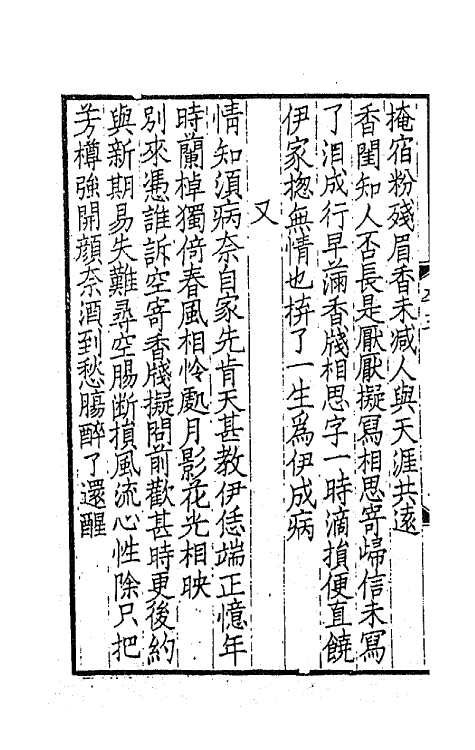 掩宿粉殘眉香未減人與天涯共遠
香閨知人否長是厭厭擬寫相思寄歸信未寫
了淚成行早滿香牋相思字一時滴損便直饒
伊家揔無情也拚了一生爲伊成病
又
情知須病奈自家先肯天甚教伊恁端正憶年
時蘭棹獨倚春風相怜處月影花光相映
別來憑誰訴空寄香牋擬問前歡甚時更後約
與新期易失難尋空腸斷損風流心性除只把
芳樽強開顔奈酒到愁腸醉了還醒